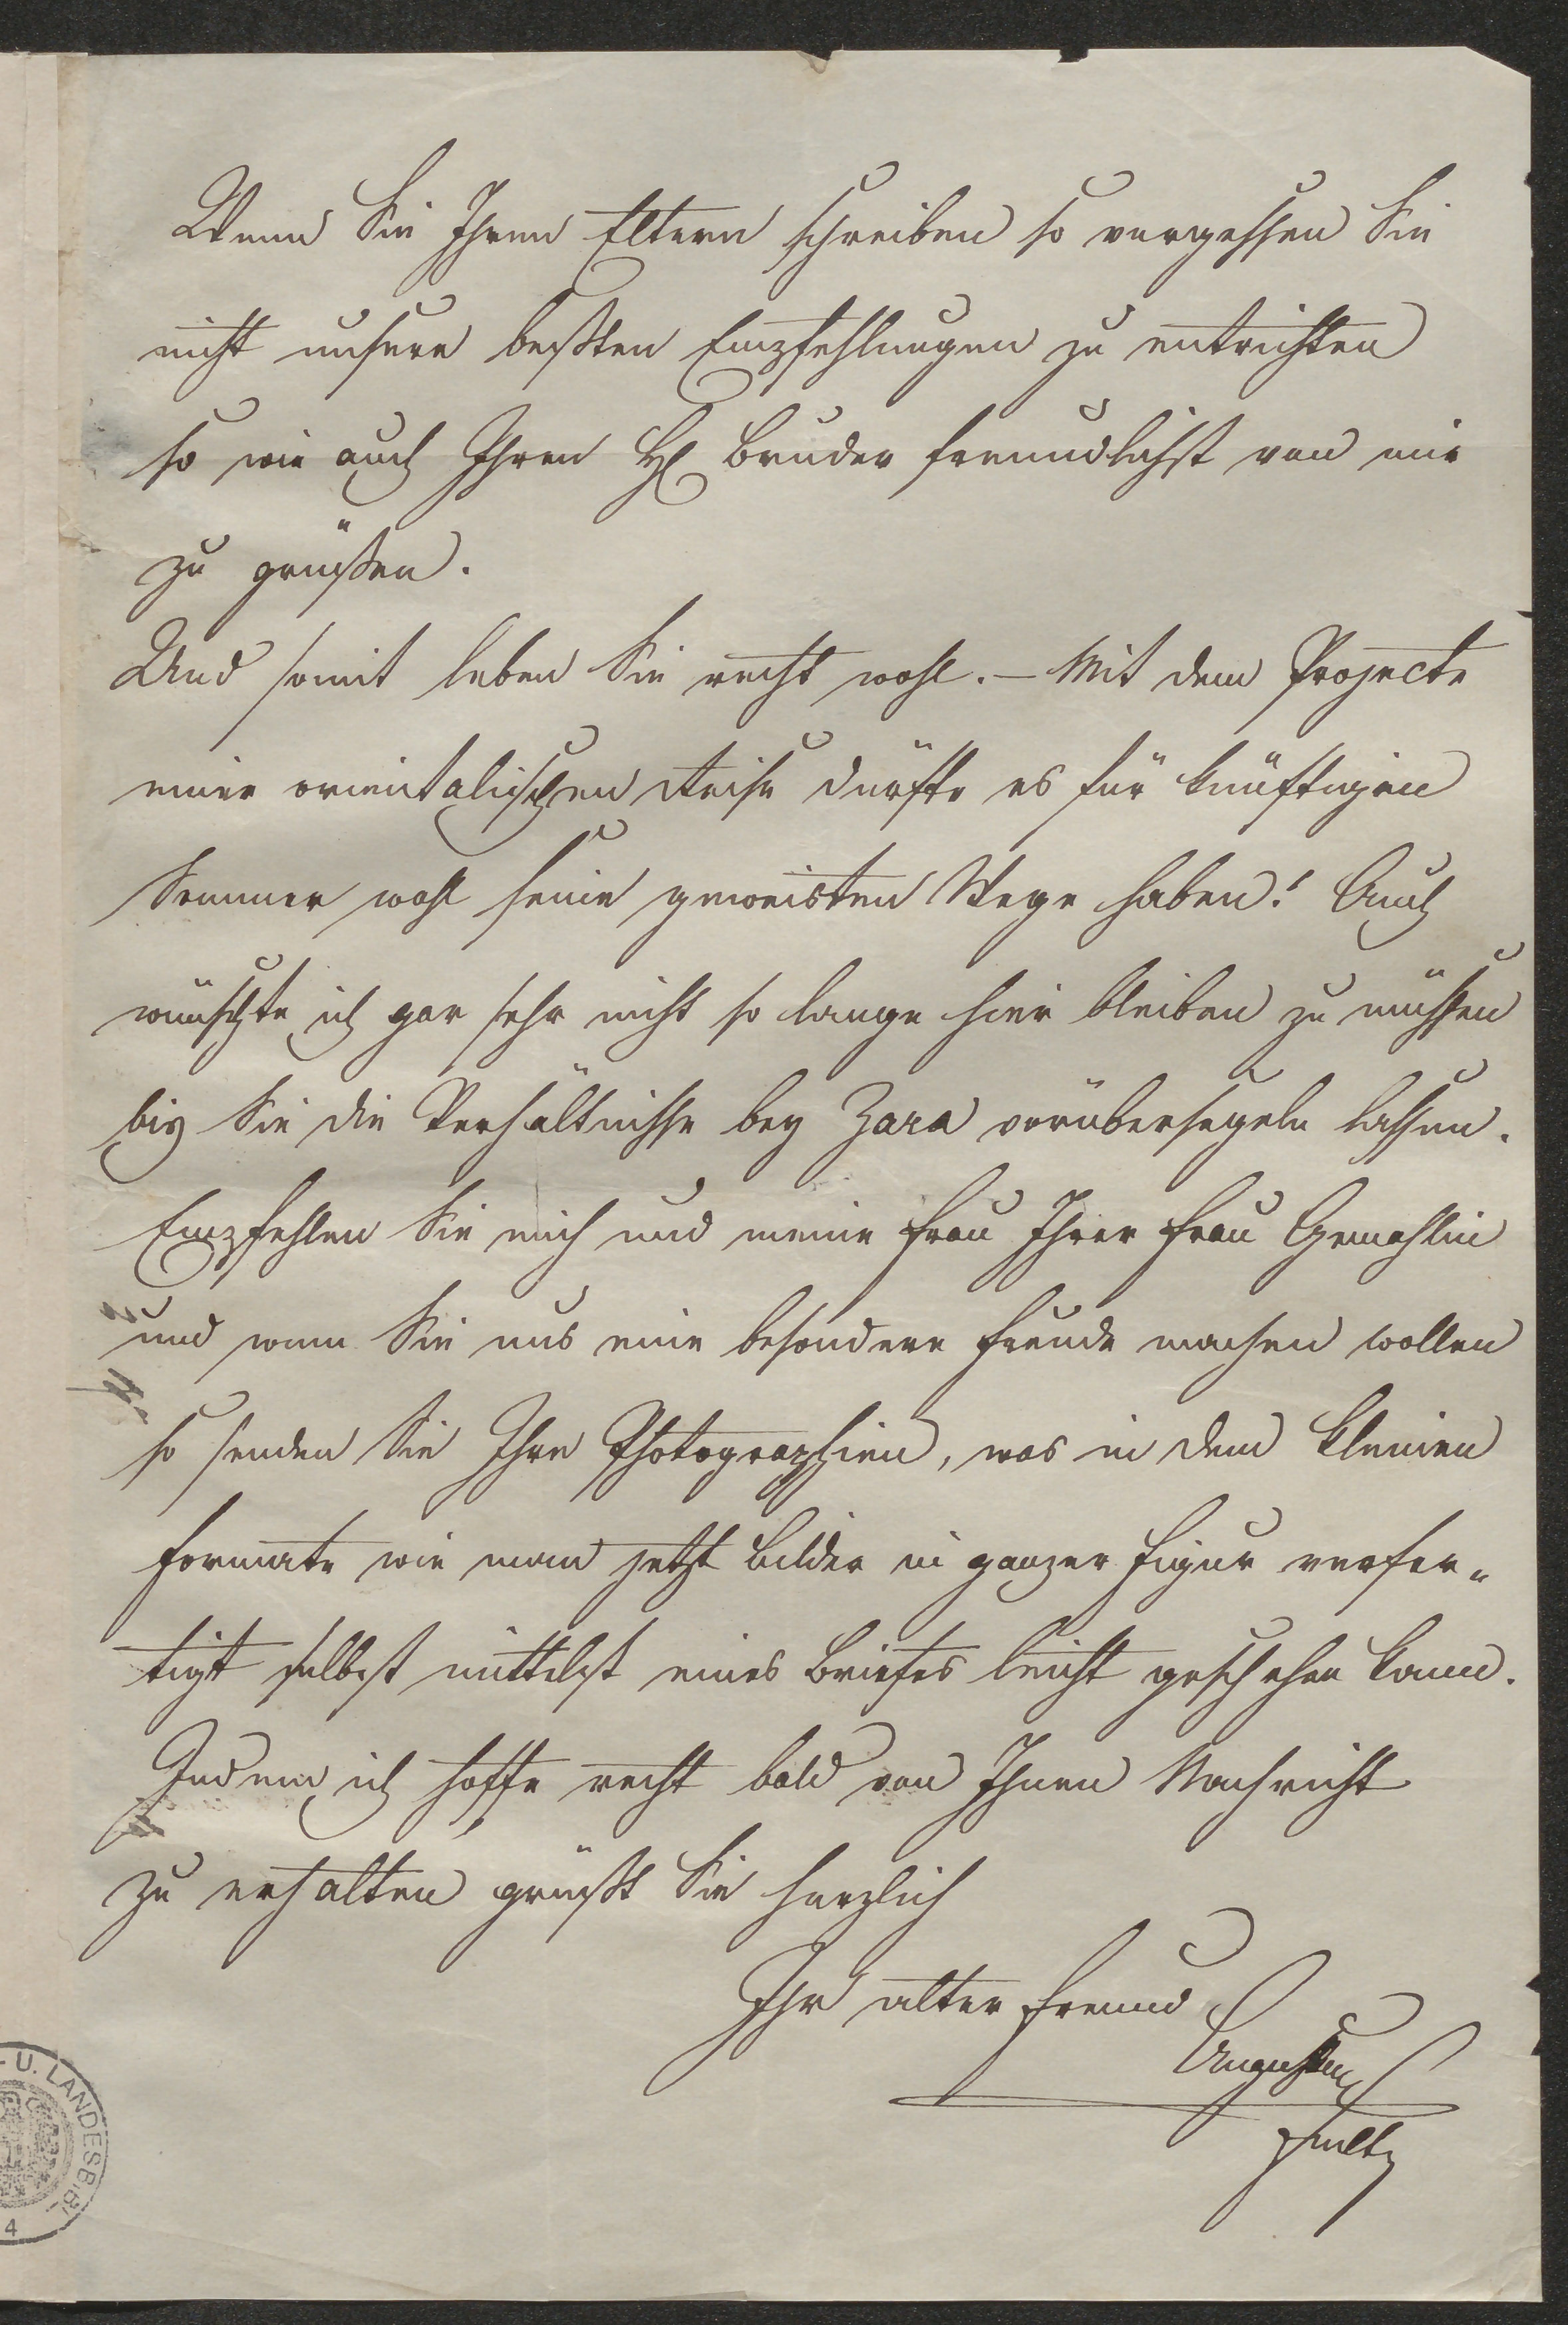 Wenn Sie Ihren Eltern schreiben so vergessen Sie
nicht unsere beßten Empfehlungen zu entrichten
so wie auch Ihren H Bruder freundlichst von mir
zu grüßen.
Und somit leben Sie recht wohl. – Mit dem Projecte
einer orientalischen Reise dürfte es für künftigen
Sommer wohl seine geweisten Wege haben! Auch
wünschte ich gar sehr nicht so lange hier bleiben zu müssen
bis Sie die Verhältnisse bey Zara vorübersegeln lassen.
Empfehlen Sie mich und meine Frau Ihrer Frau Gemahlin
und wenn Sie uns eine besondere Freude machen wollen
so senden Sie Ihre Photographien, was in dem kleinen
Formate wie man jetzt Bilder in ganzer Figur verfer„
tigt selbst mittelst eines Briefes leicht geschehen kann.
Indem ich hoffe recht bald von Ihnen Nachricht
zu erhalten grüßt Sie herzlich
Ihr alter Freund
U. LANDESBIBL
4